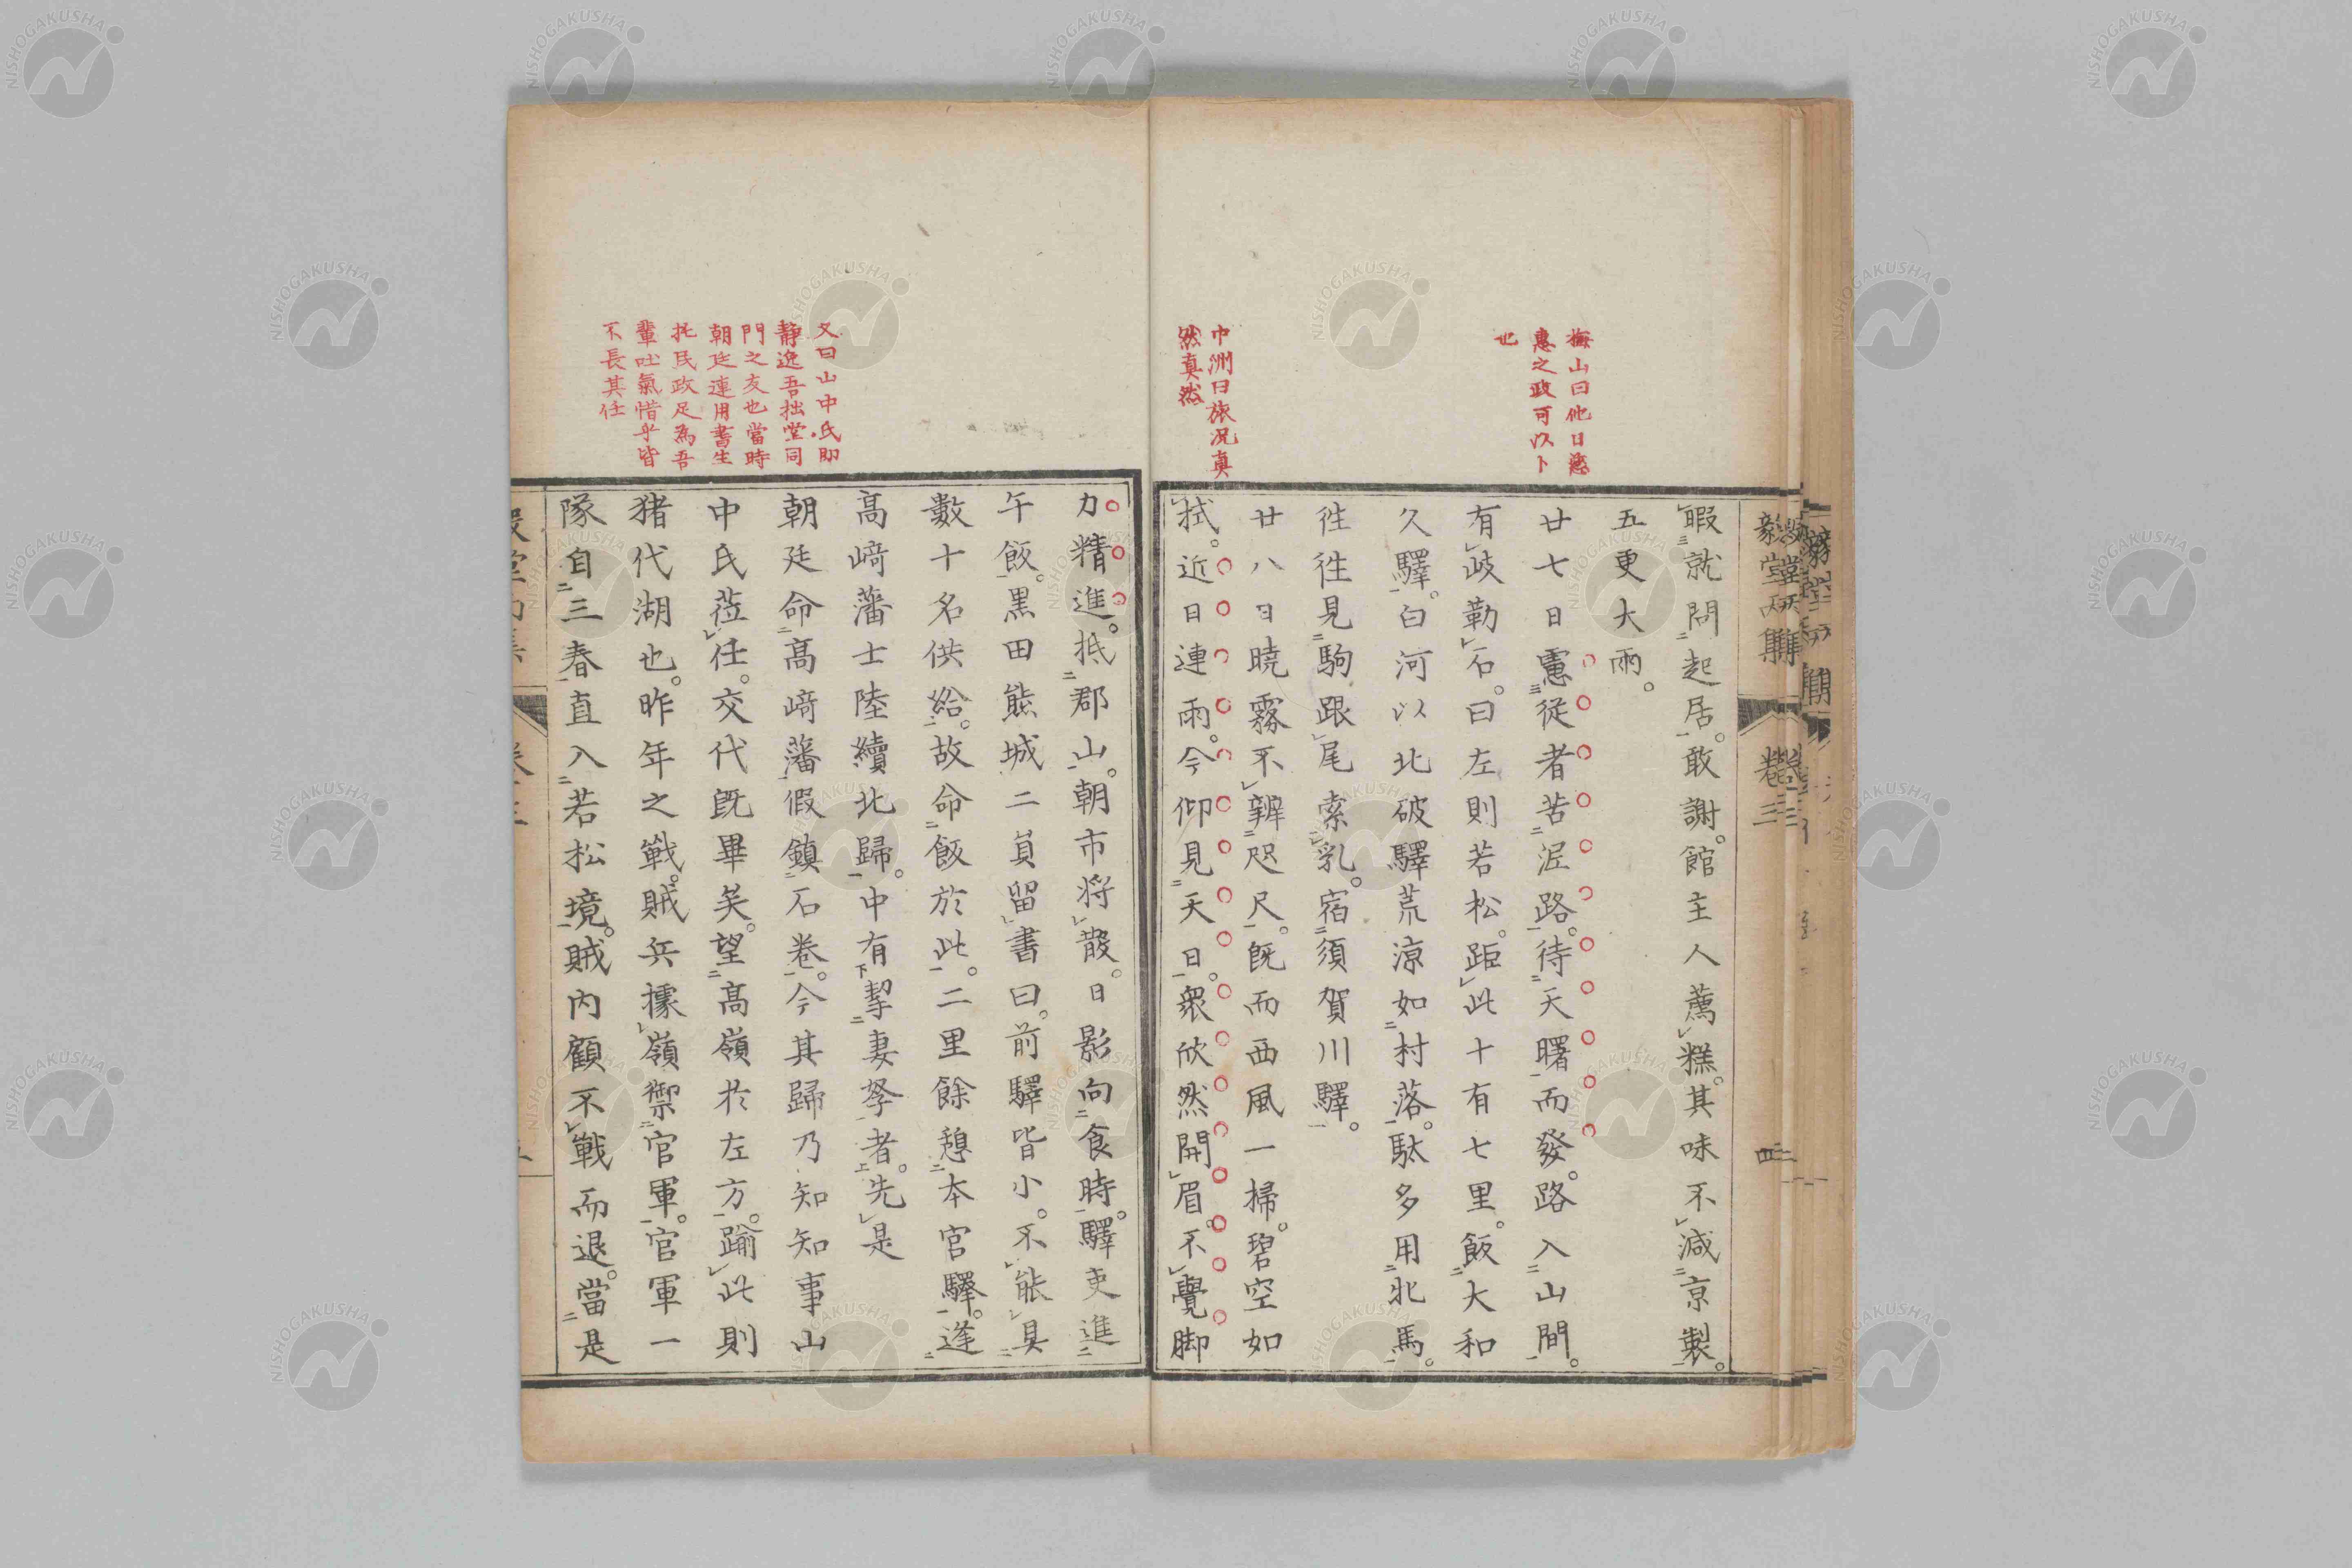 梅山曰他日慈
惠之政可以卜
也
中洲曰旅况真
然真然
暇就問起居。敢謝。館主人薦糕。其味不減京製。
五更大雨。
廿七日憲從者苦泥路。待天曙而發。路入山間。
有歧勒石。曰左則若松。距此十有七里。飯大和
久驛。白河以北破驛荒涼如村落。駄多用北馬。
徃徃見駒跟尾索乳。宿須賀川驛。
廿八日曉霧不辨咫尺。既而西風一掃。碧空如
拭。近日連雨。今仰見天日。衆欣然開眉。不覺脚
又曰山中氏即
靜逸吾拙堂同
門之友也當時
朝廷連用書生
托民政足為吾
輩吐氣惜乎皆
不長其任
力精進。抵郡山。朝市将散。日影向食時。驛吏進
午飯。黒田熊城二員留書曰。前驛皆小。不能具
數十名供給。故命飯於此。二里餘憩本宮驛。逢
高﨑藩士陸續北歸。中有挈妻孥者。先是
朝廷命高﨑藩假鎮石卷。今其歸乃知知事山
中氏莅任。交代既畢矣。望高嶺於左方。踰此則
猪代湖也。昨年之戦。賊兵據嶺禦官軍。官軍一
隊自三春直入若松境。賊内顧不戦而退。當是
NISHOGAKUSHA